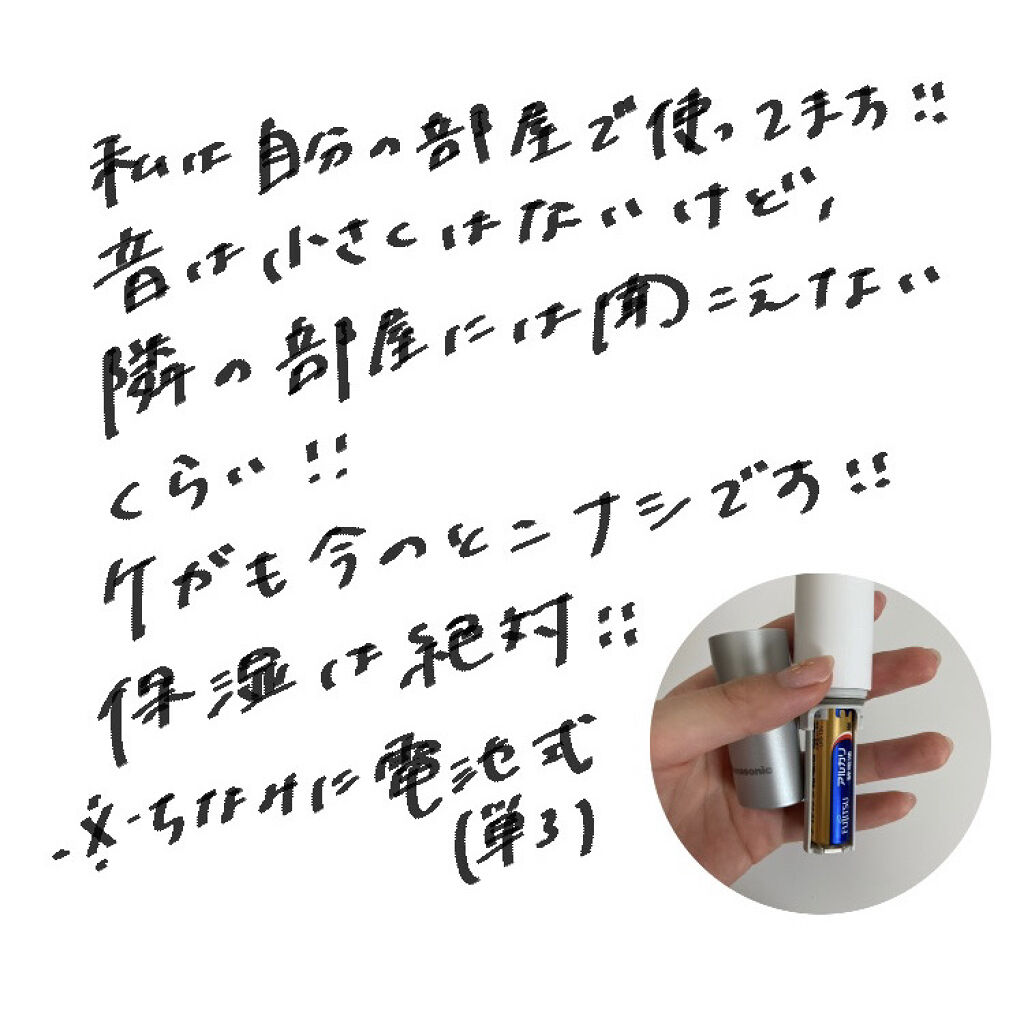 私は自分の部屋で使ってます!!
音は小さくはないけど、
隣の部屋には聞こえない
くらい!!
ケガも今のとこナシです!!
保湿は絶対!!
※ちなみに電池式
(単3)
Panasonic